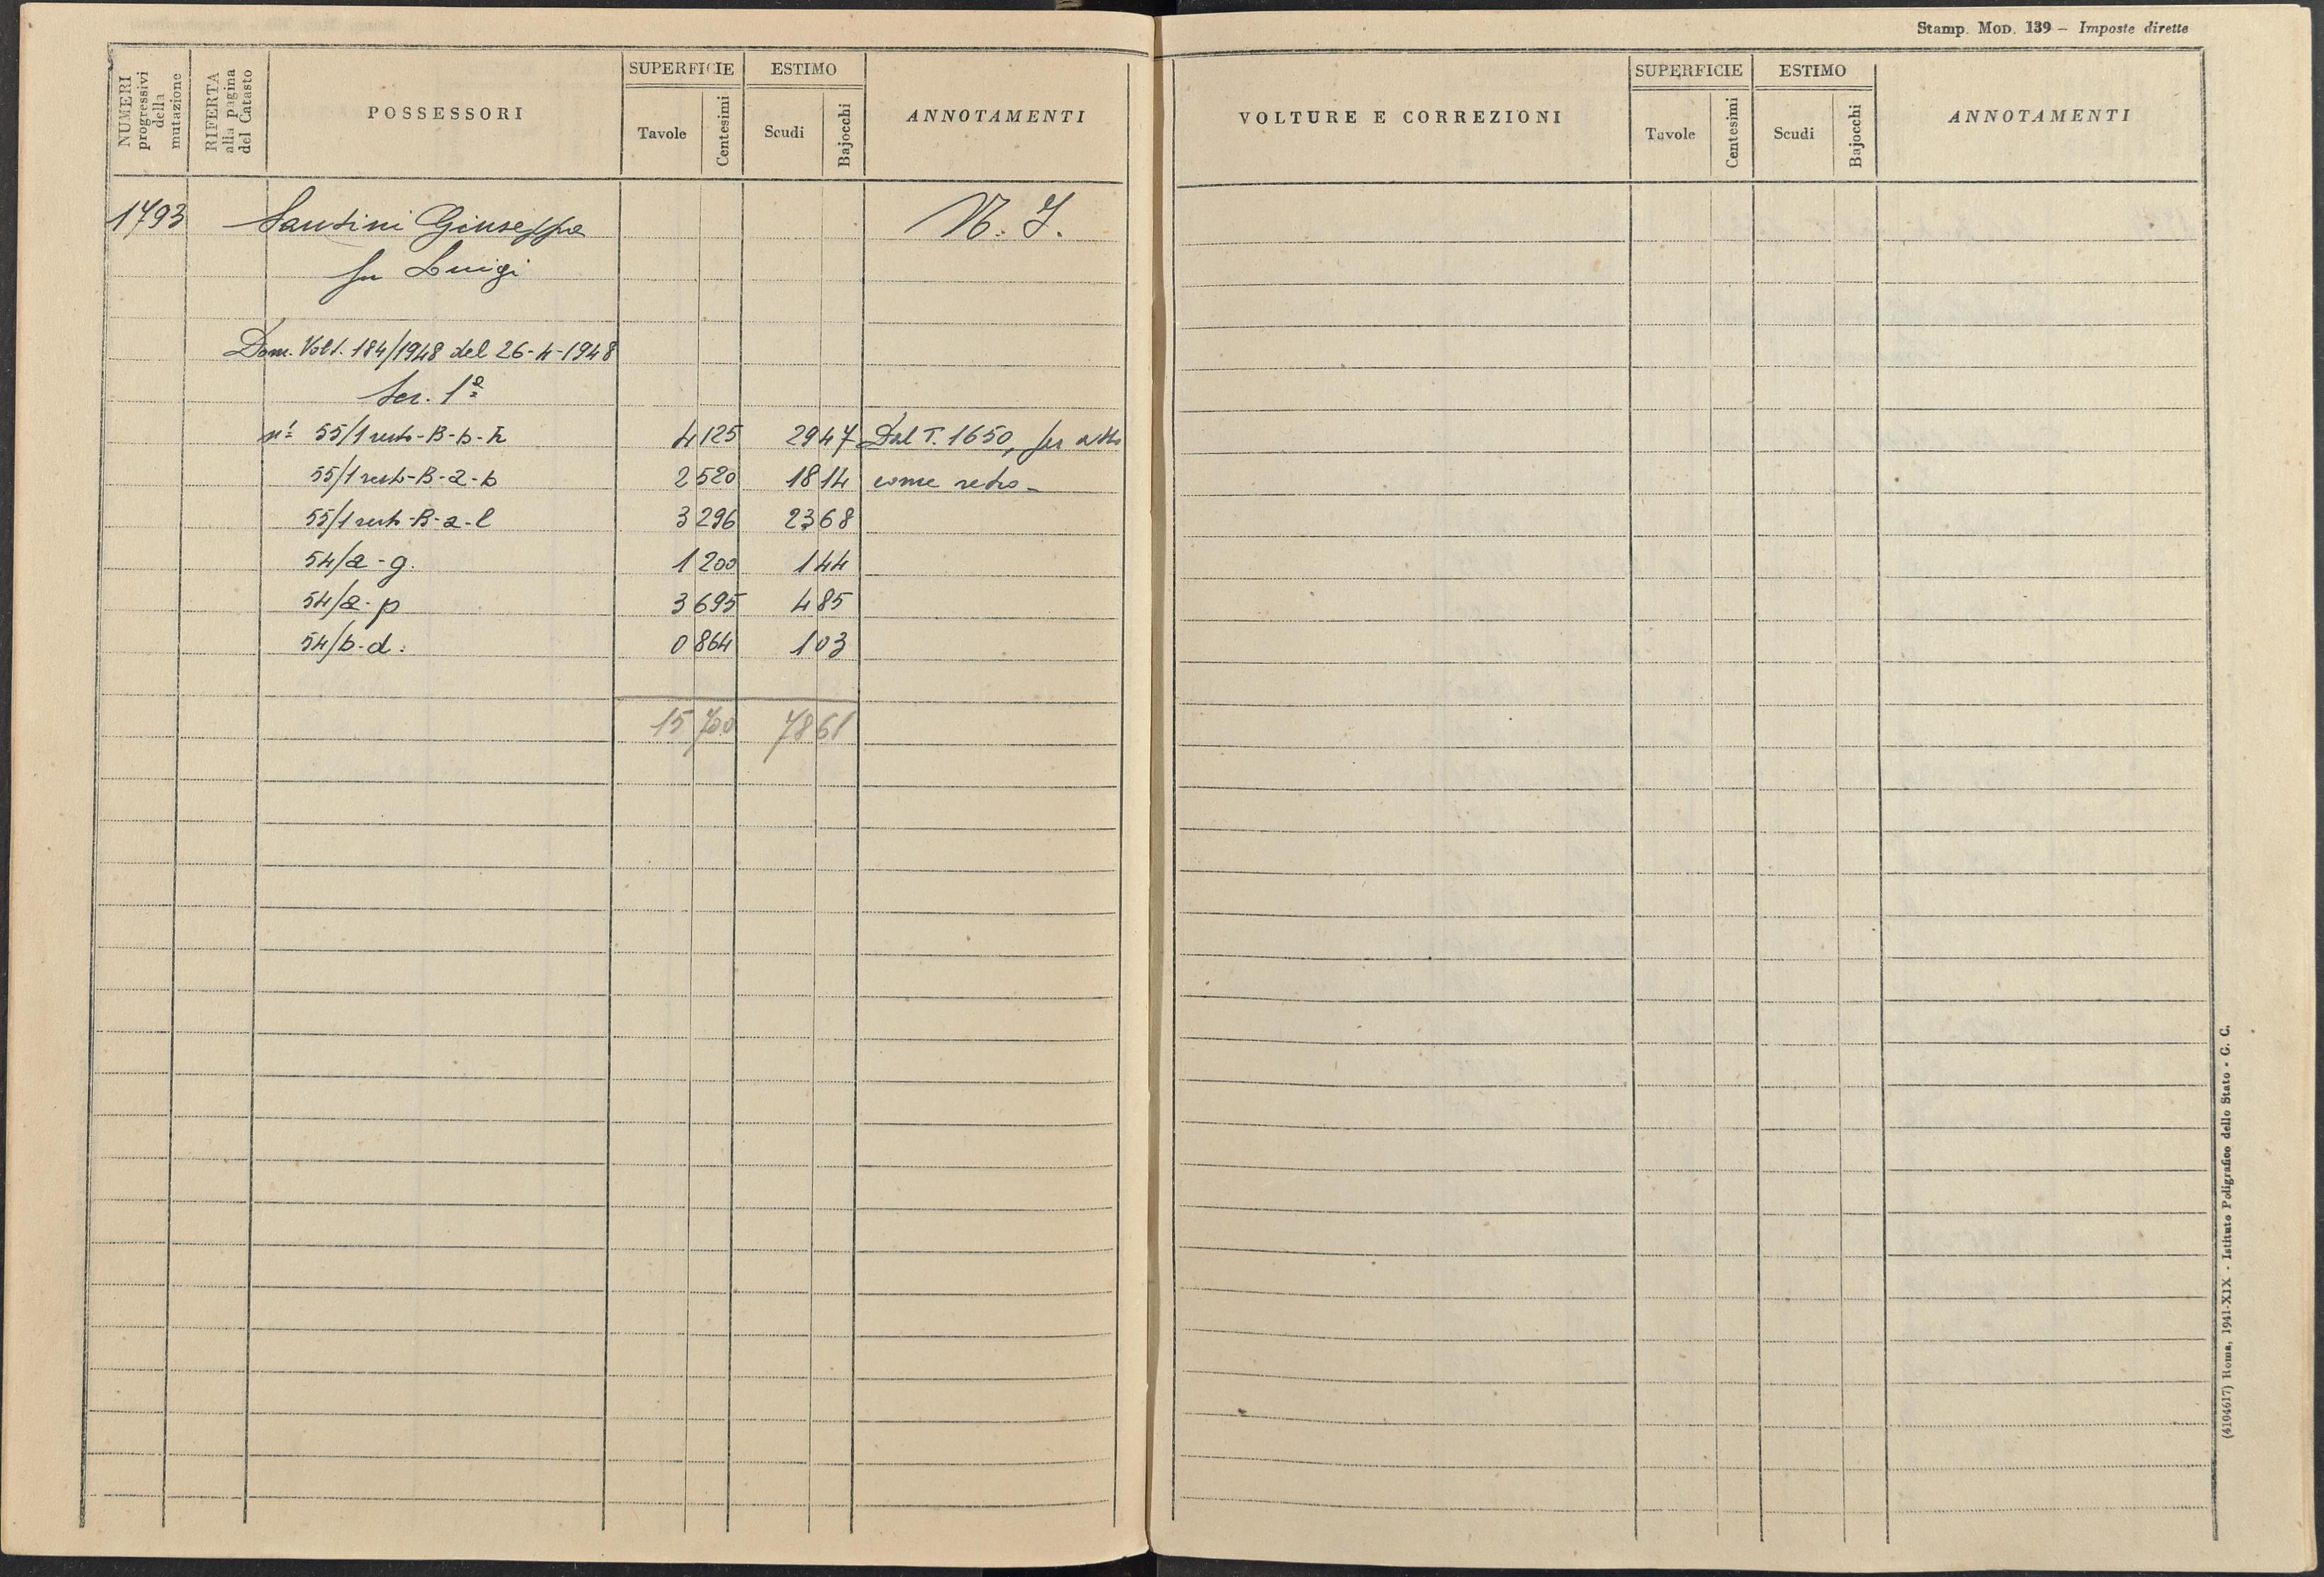 Stamp. Mod. 139 – Imposte dirette
NUMERI progressivi della mutazione
RIFERTA alla pagina del Catasto
POSSESSORI
SUPERFICIE
Tavole
Centesimi
ESTIMO
Scudi
Bajocchi
ANNOTAMENTI
VOLTURE E CORREZIONI
SUPERFICIE
Tavole
Centesimi
ESTIMO
Scudi
Bajocchi
ANNOTAMENTI
1793 Santini Giuseppe N. I.
fu Luigi
Dom. Volt. 184/1948 del 26-4-1948
Sez. 1ª
n! 55/1 resto-B-b-h 4 125 29 47 Dal T. 1650, per atto
55/1 resto-B-a-b 2 520 18 14 come retro-
55/1 resto-B-a-l 3 296 23 68
54/a-g. 1 200 1 44
54/a-p 3 695 4 85
54/b-d. 0 864 1 03
15 700 78 61
(4104617) Roma, 1941-XIX - Istituto Poligrafico dello Stato - G. C.